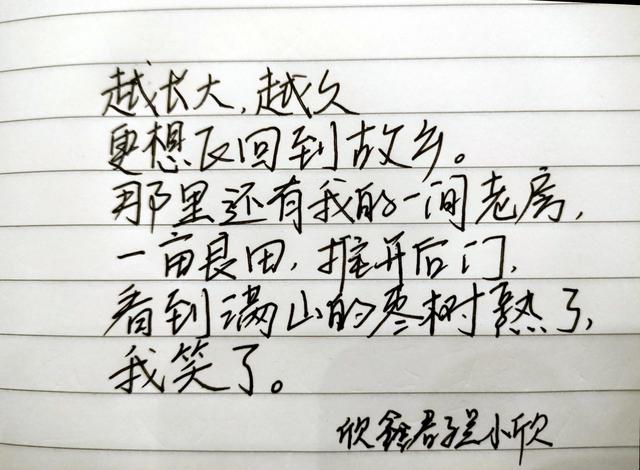 越长大,越久
更想反回到故乡。
那里还有我的一间老房,
一亩良田,推开后门,
看到满山的枣树熟了,
我笑了。
欣鑫君 小欣